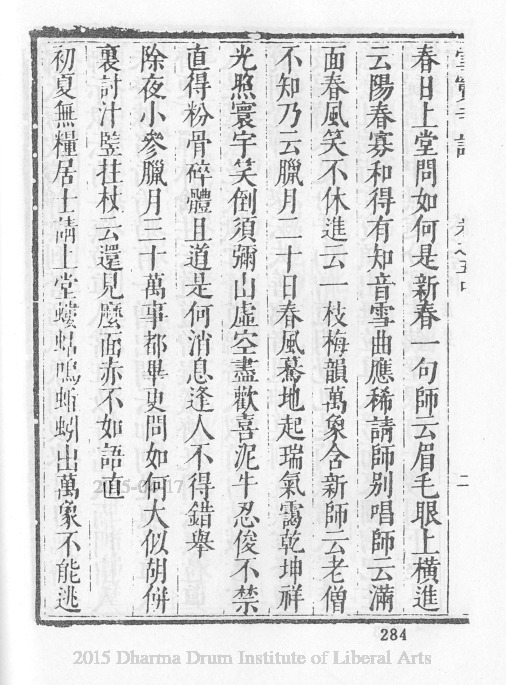 春日上堂問如何是新春一句師云眉毛眼上橫進
云陽春寡和得有知音雪曲應稀請師別唱師云滿
面春風笑不休進云一枝梅韻萬象含新師云老僧
不知乃云臘月二十日春風驀地起瑞氣靄乾坤祥
光照寰宇笑倒須彌山虛空盡歡喜泥牛忍俊不禁
直得粉骨碎體且道是何消息逢人不得錯舉
除夜小參臘月三十萬事都畢更問如何大似胡餅
裏討汁豎拄杖云還見麼面赤不如語直
初夏無糧居士請上堂螻蛄鳴蚯蚓出萬象不能逃
二
284
2015 Dharma Drum Institute of Liberal Arts